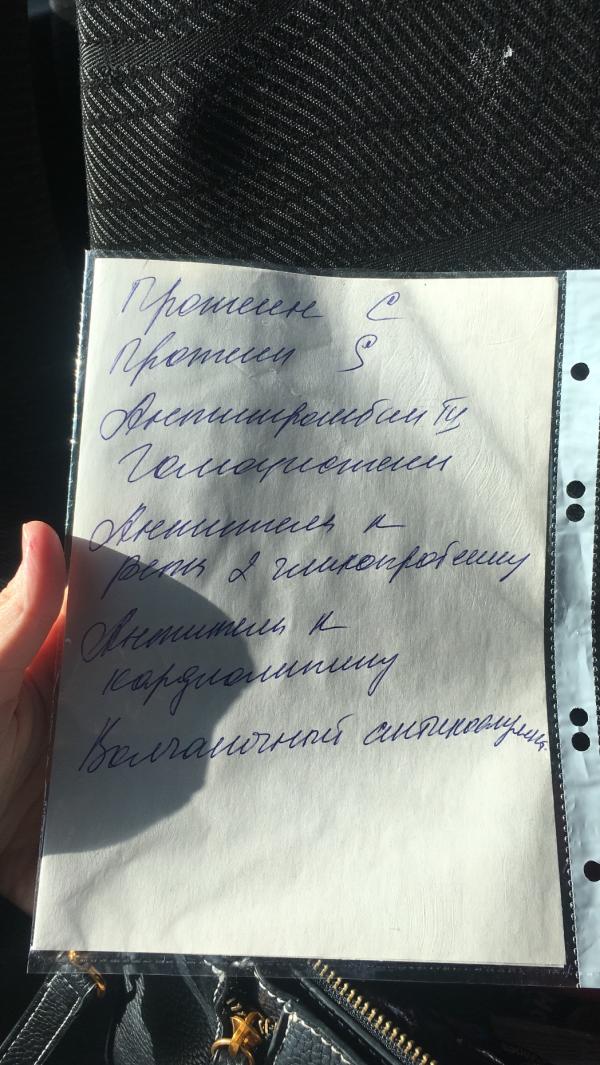 Протеин C
Протеин S
Антитромбин III
Гомоцистеин
Антитела к
бета 2 гликопротеину
Антитела к
кардиолипину
Волчаночный антикоагулянт